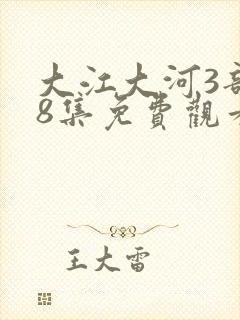 大江大河3
8集免費觀
王大雷